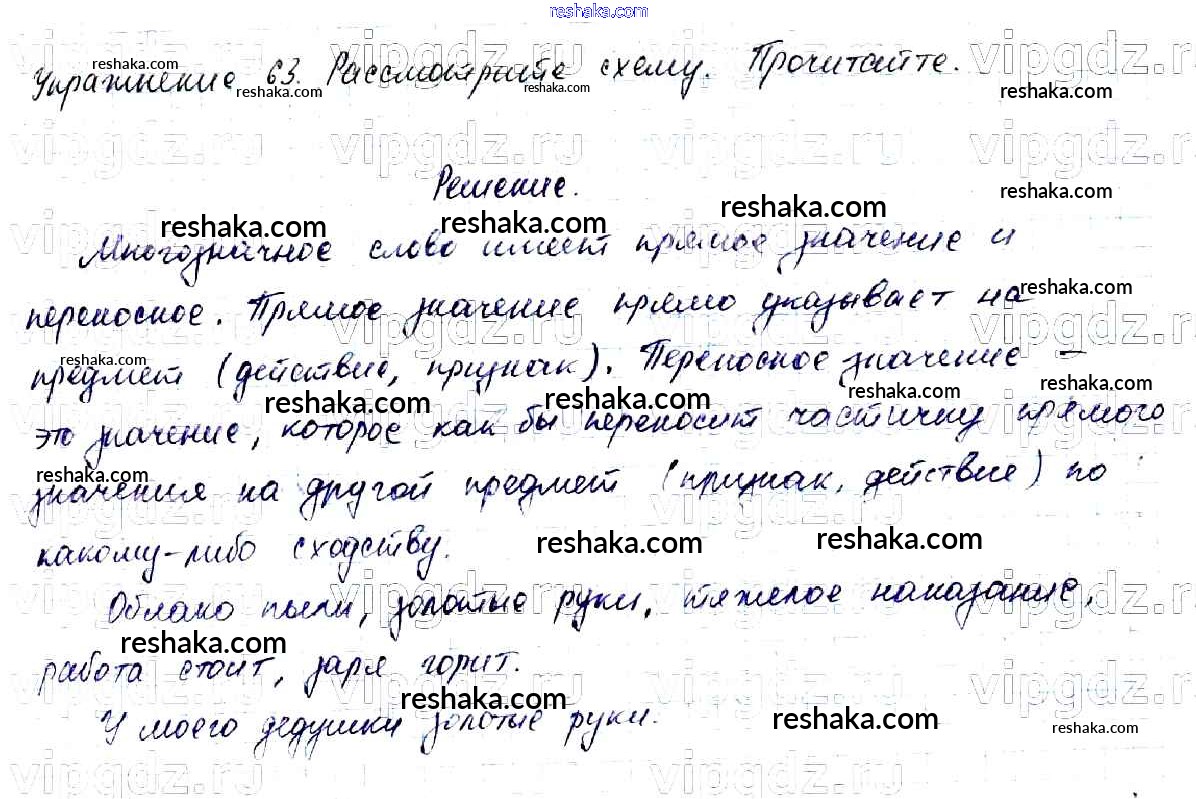 reshaka.com
Упражнение 63. Рассмотрите схему. Прочитайте.
Решение.
Многозначное слово имеет прямое значение и
переносное. Прямое значение прямо указывает на
предмет (действие, признак). Переносное значение –
это значение, которое как бы переносит частичку прямого
значения на другой предмет (признак, действие) по
какому-либо сходству.
Облако пыли, золотые руки, тяжелое наказание,
работа стоит, заря горит.
У моего дедушки золотые руки.